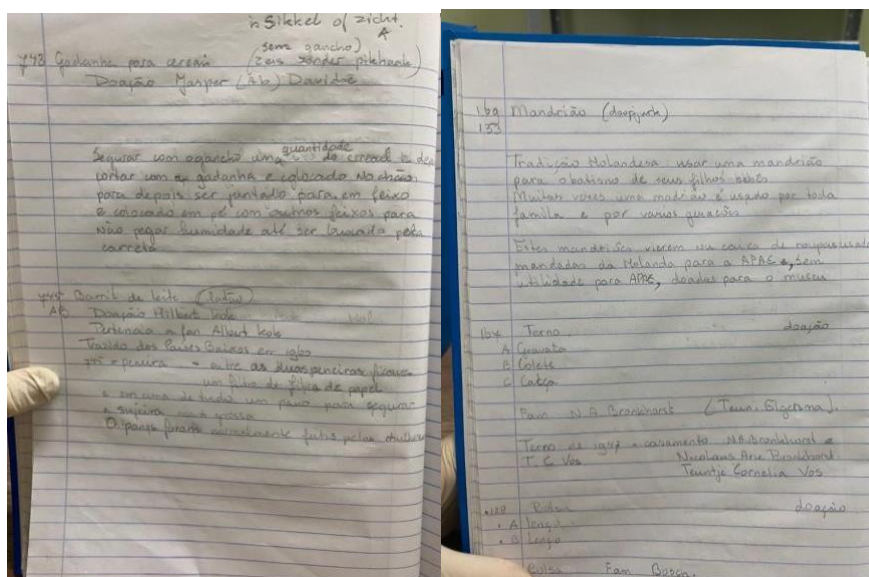 is Sikkel of zicht.
A
(sem gancho)
743 Gadanha para cereais (zeis zonder pikhaak)
Doação Jasper (Ab) Davidse
quantidade
Segurar com o gancho uma do cereal e
cortar com a gadanha e colocado no chão
para depois ser juntado para em feixo
e colocado em pé com outros feixos para
não pegar humidade até ser buscada pela
carreta
745 Barril de leite (latão)
A/B Doação Hilbert Kok
Pertencia a fam Albert Kok
Trazido dos Países Baixos em 1960
745 = peneira - entre as duas peneiras
um filtro de fibra de papel
e em cima de tudo um pano para segurar
a sujeira mais grossa
O panos foram normalmente feitos pelas mulheres
169 Mandrião (doopjurk)
133
Tradição Holandesa: usar uma mandrião
para o batismo de seus filhos bebês
Muitas vezes uma madrião é usado por toda
familia e por varios gerações
Estes mandriões vieram na caixa de roupas usadas
mandadas da Holanda para a APAE e, sem
utilidade para APAE, doadas para o museu
164 Terno doação
A Gravata
B Colete
C Calça
Fam N A Bronkhorst (Teuni Elgersma).
Terno de 1947 = casamento N.A. Bronkhorst e
T. C Vos Nicolaas Arie Bronkhorst
Teuntje Cornelia Vos
.188 doação
. A Lenço
. B Lenço
Bolsa Fam Bosch.